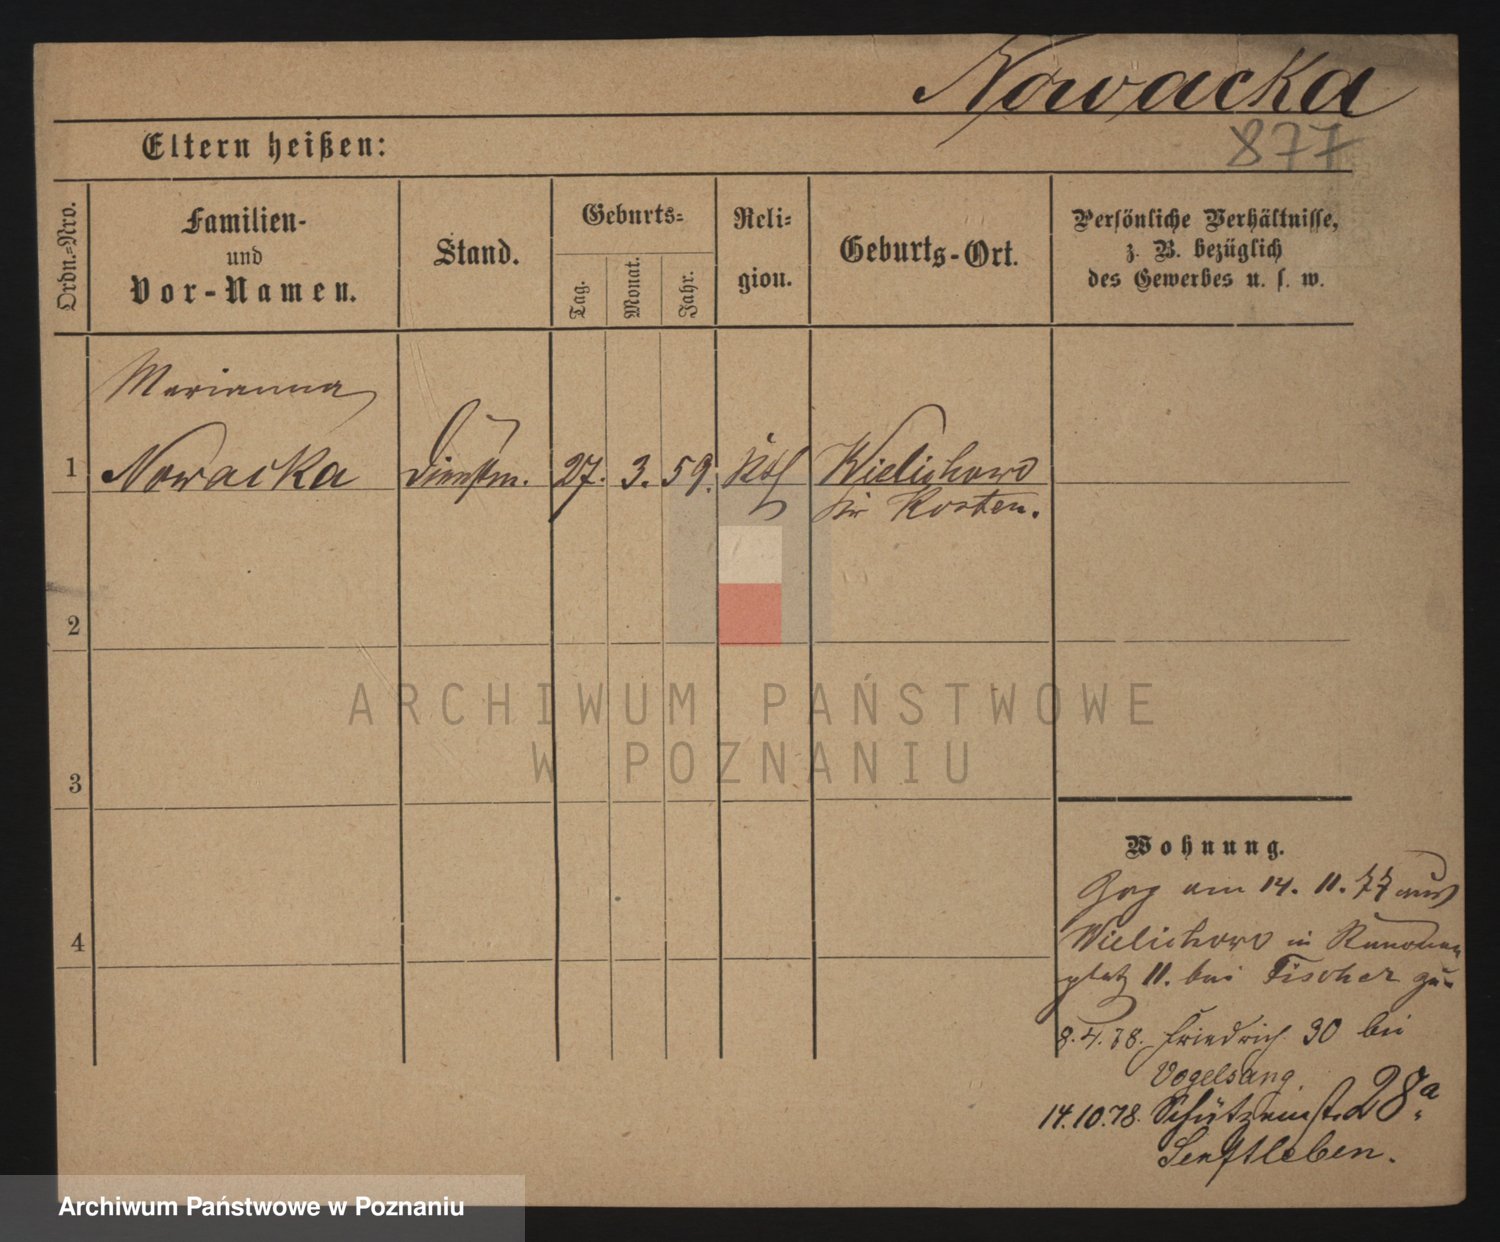 Nowacka
877
Eltern heißen:
Ordn.=Nro.
Familien-
und
Vor-Namen.
Stand.
Geburts=
Tag.
Monat.
Jahr.
Reli=
gion.
Geburts-Ort.
Persönliche Verhältnisse,
z. B. bezüglich
des Gewerbes u. s. w.
Marianna
1 Nowacka Dienstm. 27. 3. 59. Kth Wielichowo
Kr Kosten.
2
3
4
ARCHIWUM PAŃSTWOWE
W POZNANIU
Wohnung.
Zog am 14. 11. 77 aus
Wielichowo in Kanonen
platz 11. bei Fischer zu.
8.4.78. Friedrich 30 bei
Vogelsang.
14.10.78. Schützenst. 28a.
Senftleben.
Archiwum Państwowe w Poznaniu